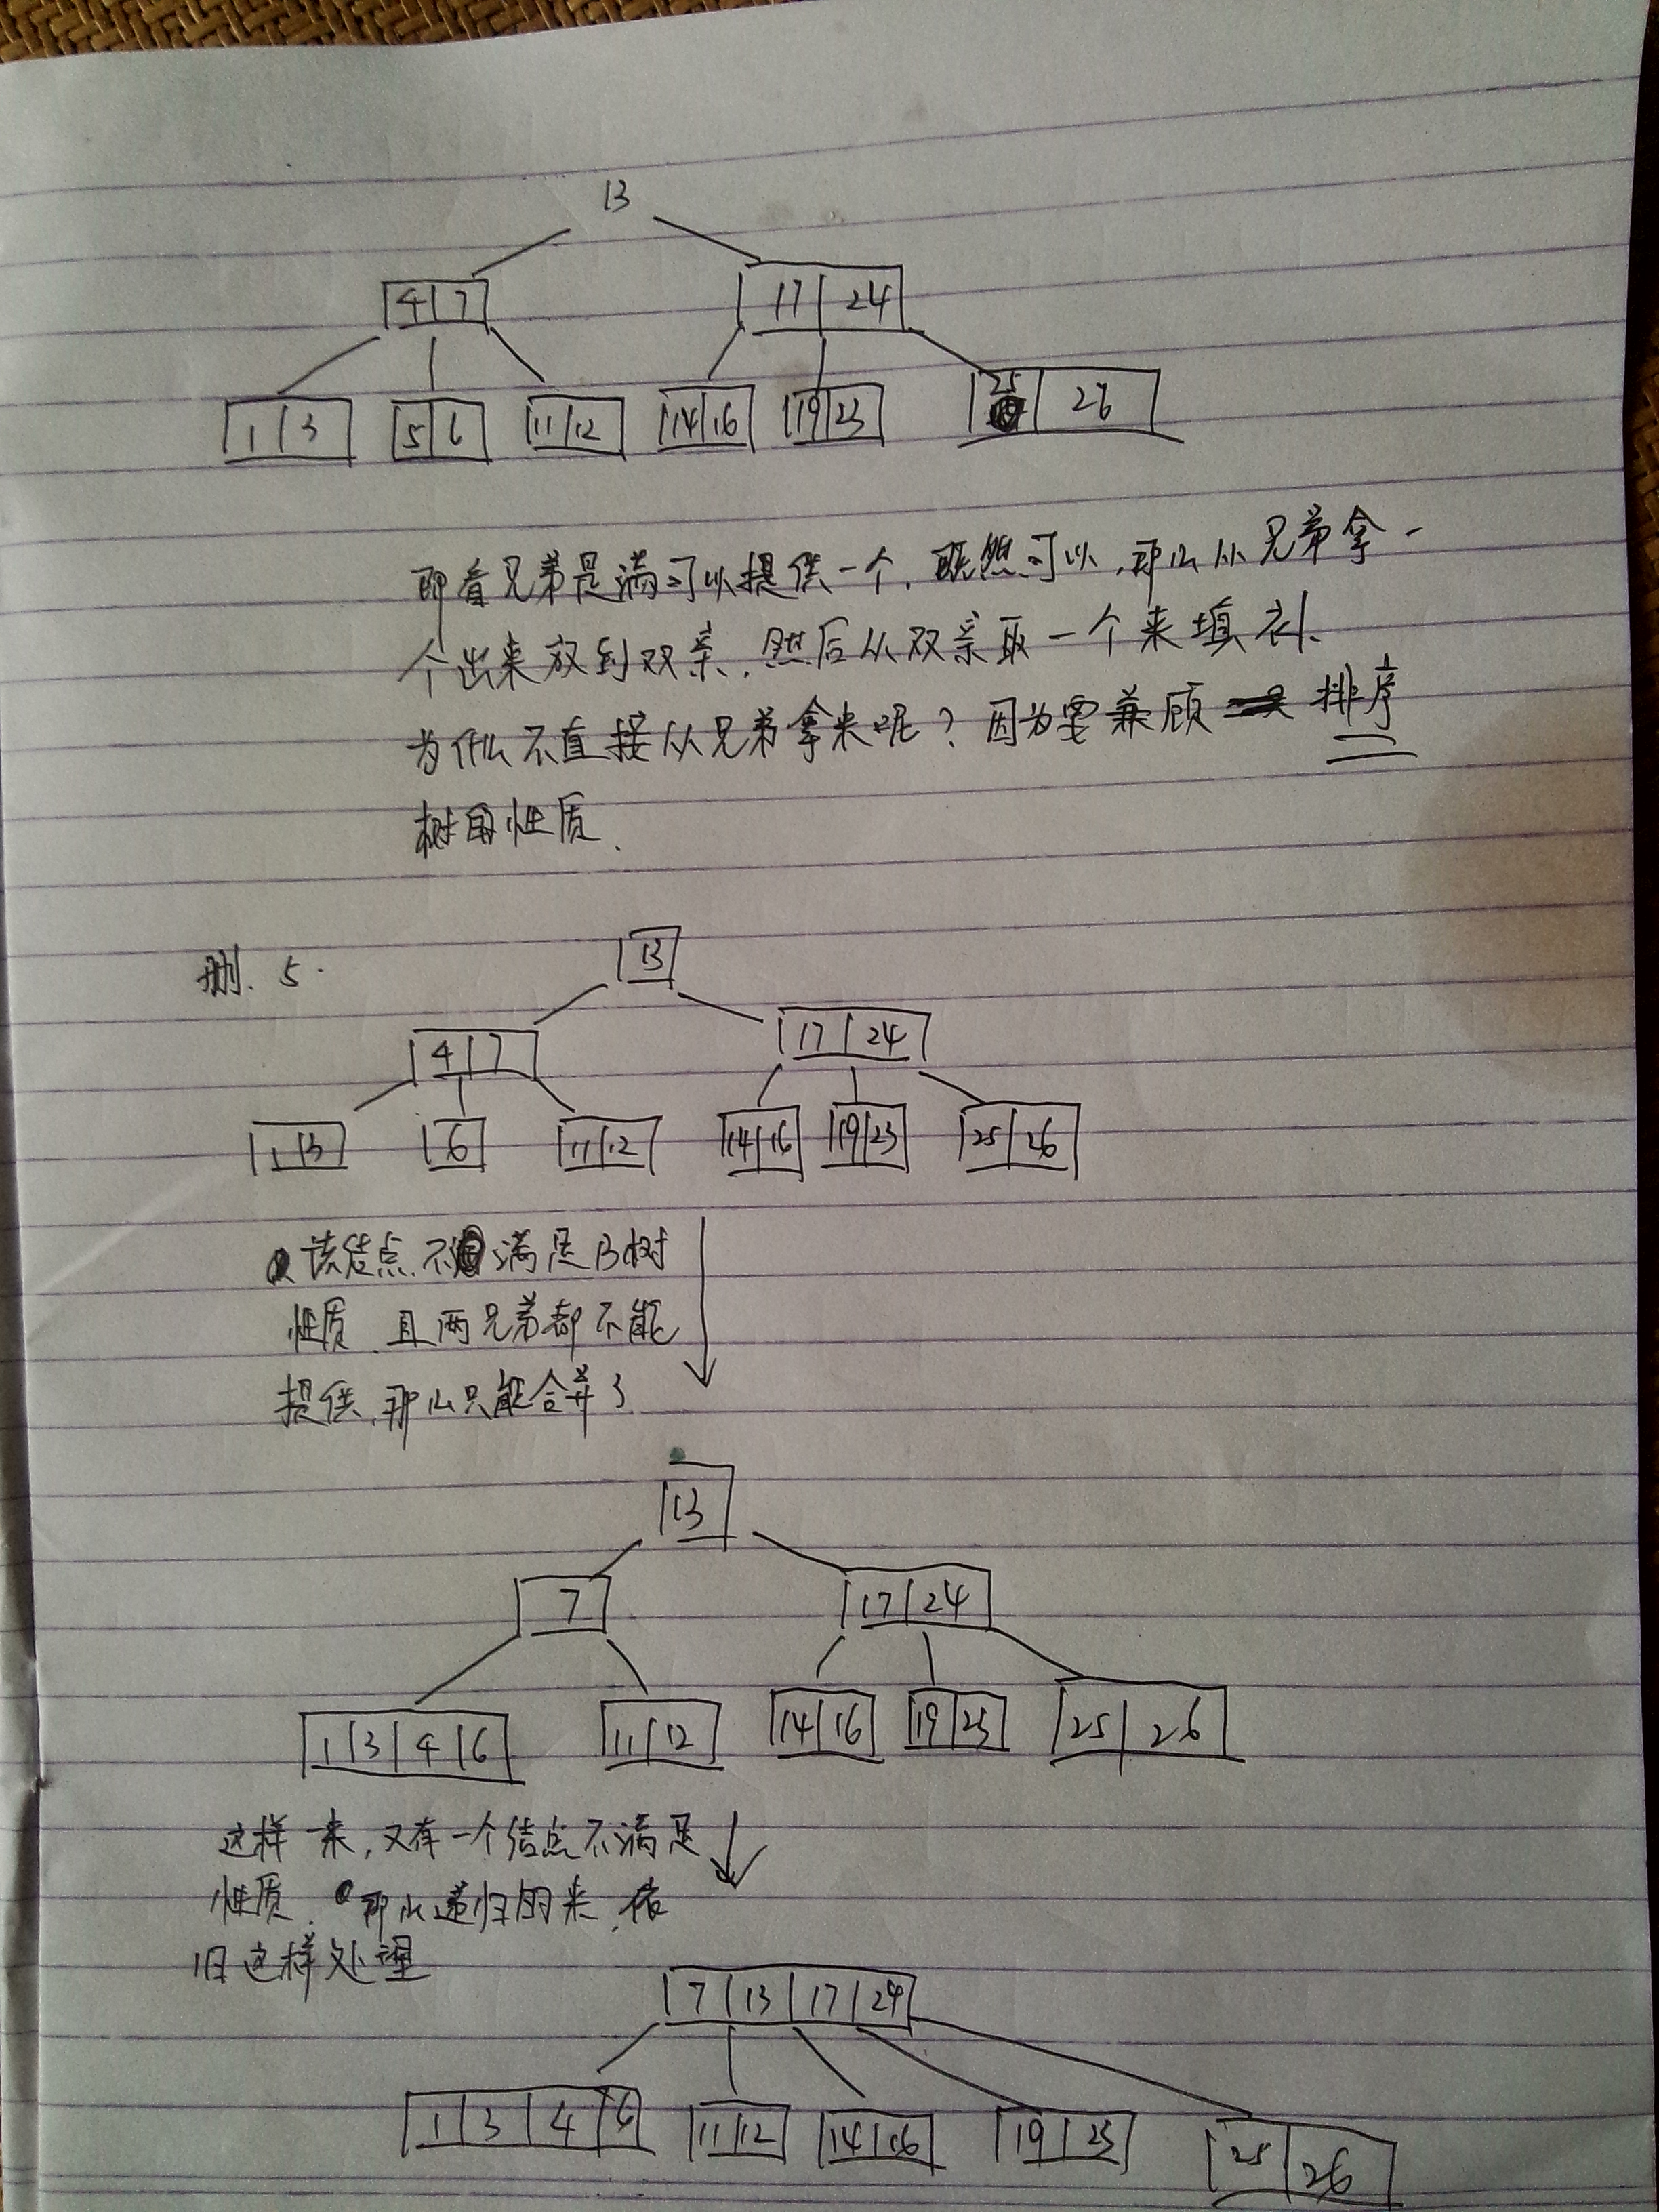 13
4 7 17 24
1 3 5 6 11 12 14 16 19 23 25 26
那看兄弟是满可以提供一个，既然可以，那么从兄弟拿一
个出来放到双亲，然后从双亲取一个来填补．
为什么不直接从兄弟拿来呢？因为要兼顾 排序
树的性质．
删．5．
13
4 7 17 24
1 3 6 11 12 14 16 19 23 25 26
该结点不满足B树
性质．且两兄弟都不能
提供，那么只能合并了
13
7 17 24
1 3 4 6 11 12 14 16 19 23 25 26
这样一来，又有一个结点不满足
性质．那么递归的来，依
旧这样处理
7 13 17 24
1 3 4 6 11 12 14 16 19 23 25 26